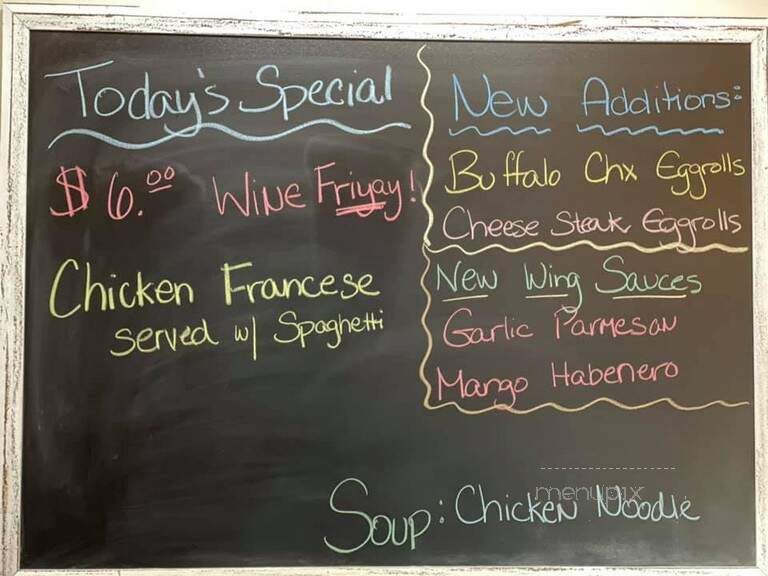 Today's Special
$6.00 Wine Friyay!
Chicken Francese
served w/ Spaghetti
New Additions:
Buffalo Chx Eggrolls
Cheese Steak Eggrolls
New Wing Sauces
Garlic Parmesan
Mango Habenero
Soup: Chicken Noodle
menupix